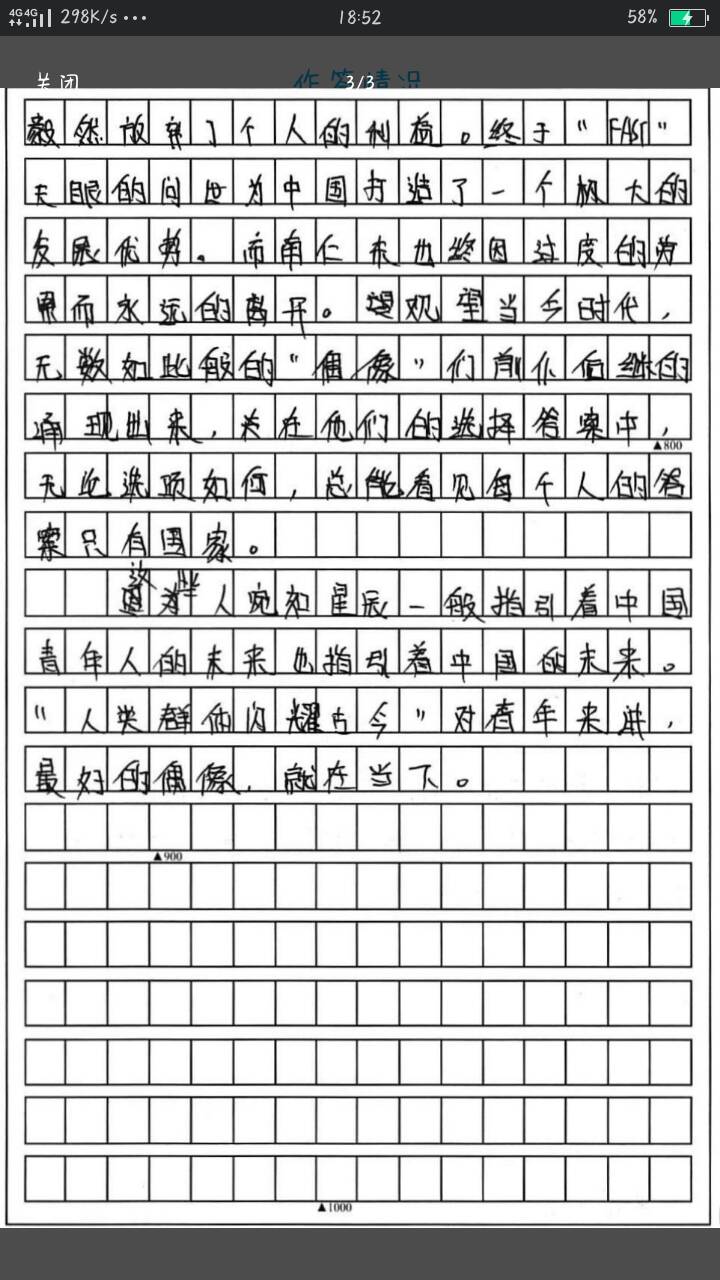 4G 4G 298K/s ··· 18:52 58%
关闭 作答情况 3/3
毅然放弃了个人的利益。终于“FAST”
天眼的问世为中国打造了一个极大的
发展优势。而南仁东也终因过度的劳
累而永远的离开。观望当今时代,
无数如此般的“偶像”们前仆后继的
涌现出来,关在他们的选择答案中,
▲800
无论选项如何,总能看见每个人的答
案只有国家。
这些人宛如星辰一般指引着中国
青年人的未来也指引着中国的未来。
“人类群体闪耀古今”对青年来讲,
最好的偶像,就在当下。
▲900
▲1000